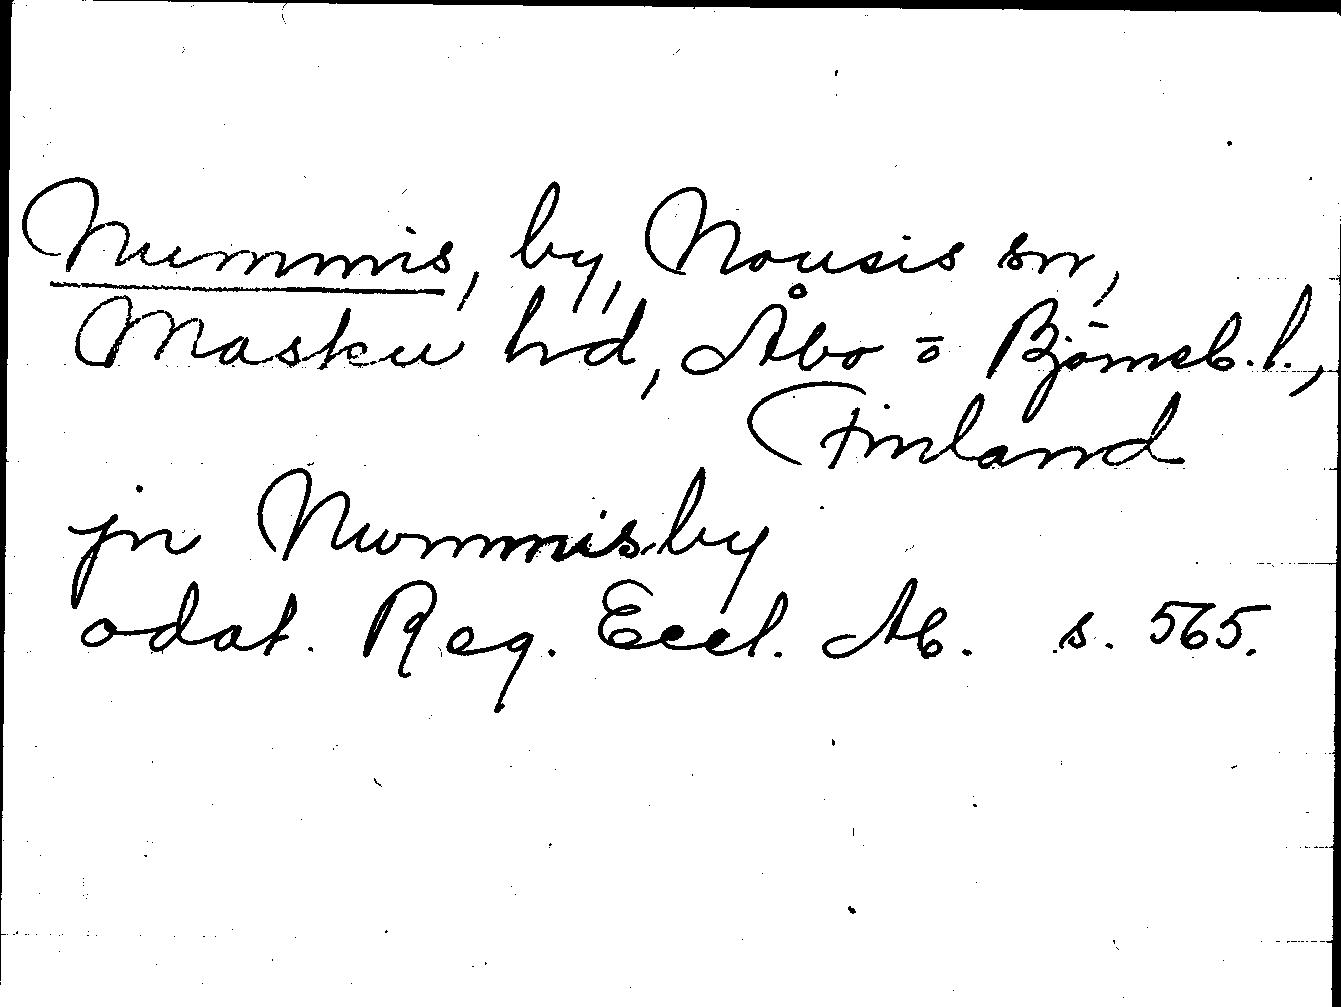 Nummis, by, Nousis sn,
Masku hd, Åbo o Björneb. l.,
Finland
jn Nummisby
odat. Reg. Eccl. Ab. s. 565.